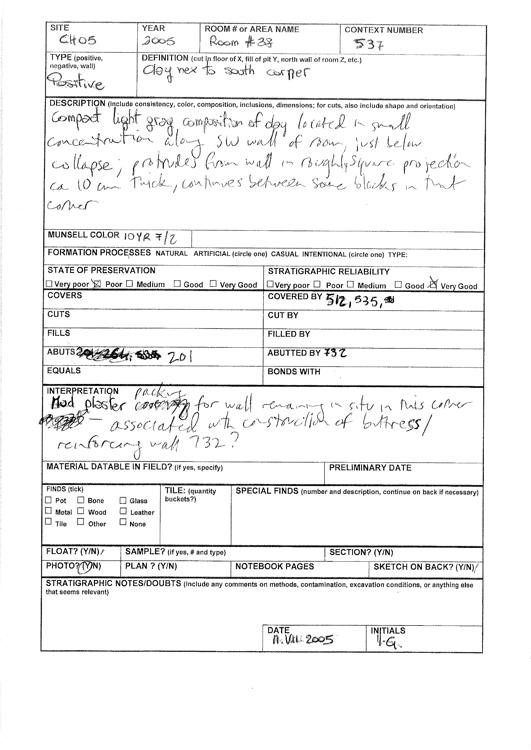 SITE YEAR ROOM # or AREA NAME CONTEXT NUMBER
CH05 2005 Room #38 537
TYPE (positive, negative, wall) DEFINITION (cut in floor of X, fill of pit Y, north wall of room Z, etc.)
Positive Clay nex to south corner
DESCRIPTION (Include consistency, color, composition, inclusions, dimensions; for cuts, also include shape and orientation)
Compact light gray composition of clay located in small
concentration along SW wall of room, just below
collapse; protrudes from wall in roughly square projection
ca 10 cm thick, continues between some blocks in that
corner
MUNSELL COLOR 10YR 7/2
FORMATION PROCESSES NATURAL ARTIFICIAL (circle one) CASUAL INTENTIONAL (circle one) TYPE:
STATE OF PRESERVATION STRATIGRAPHIC RELIABILITY
Very poor Poor Medium Good Very Good Very poor Poor Medium Good Very Good
COVERS COVERED BY 512, 535,
CUTS CUT BY
FILLS FILLED BY
ABUTS 201 ABUTTED BY 732
EQUALS BONDS WITH
INTERPRETATION packing
Mud plaster for wall remaining in situ in this corner
— associated with construction of buttress/
reinforcing wall 732?
MATERIAL DATABLE IN FIELD? (if yes, specify) PRELIMINARY DATE
FINDS (tick) TILE: (quantity buckets?) SPECIAL FINDS (number and description, continue on back if necessary)
Pot Bone Glass
Metal Wood Leather
Tile Other None
FLOAT? (Y/N) / SAMPLE? (if yes, # and type) SECTION? (Y/N)
PHOTO? (Y/N) PLAN ? (Y/N) NOTEBOOK PAGES SKETCH ON BACK? (Y/N) /
STRATIGRAPHIC NOTES/DOUBTS (Include any comments on methods, contamination, excavation conditions, or anything else
that seems relevant)
DATE INITIALS
2005